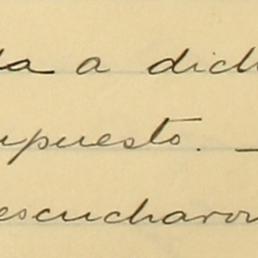 da a dich
upuesto. —
escucharon